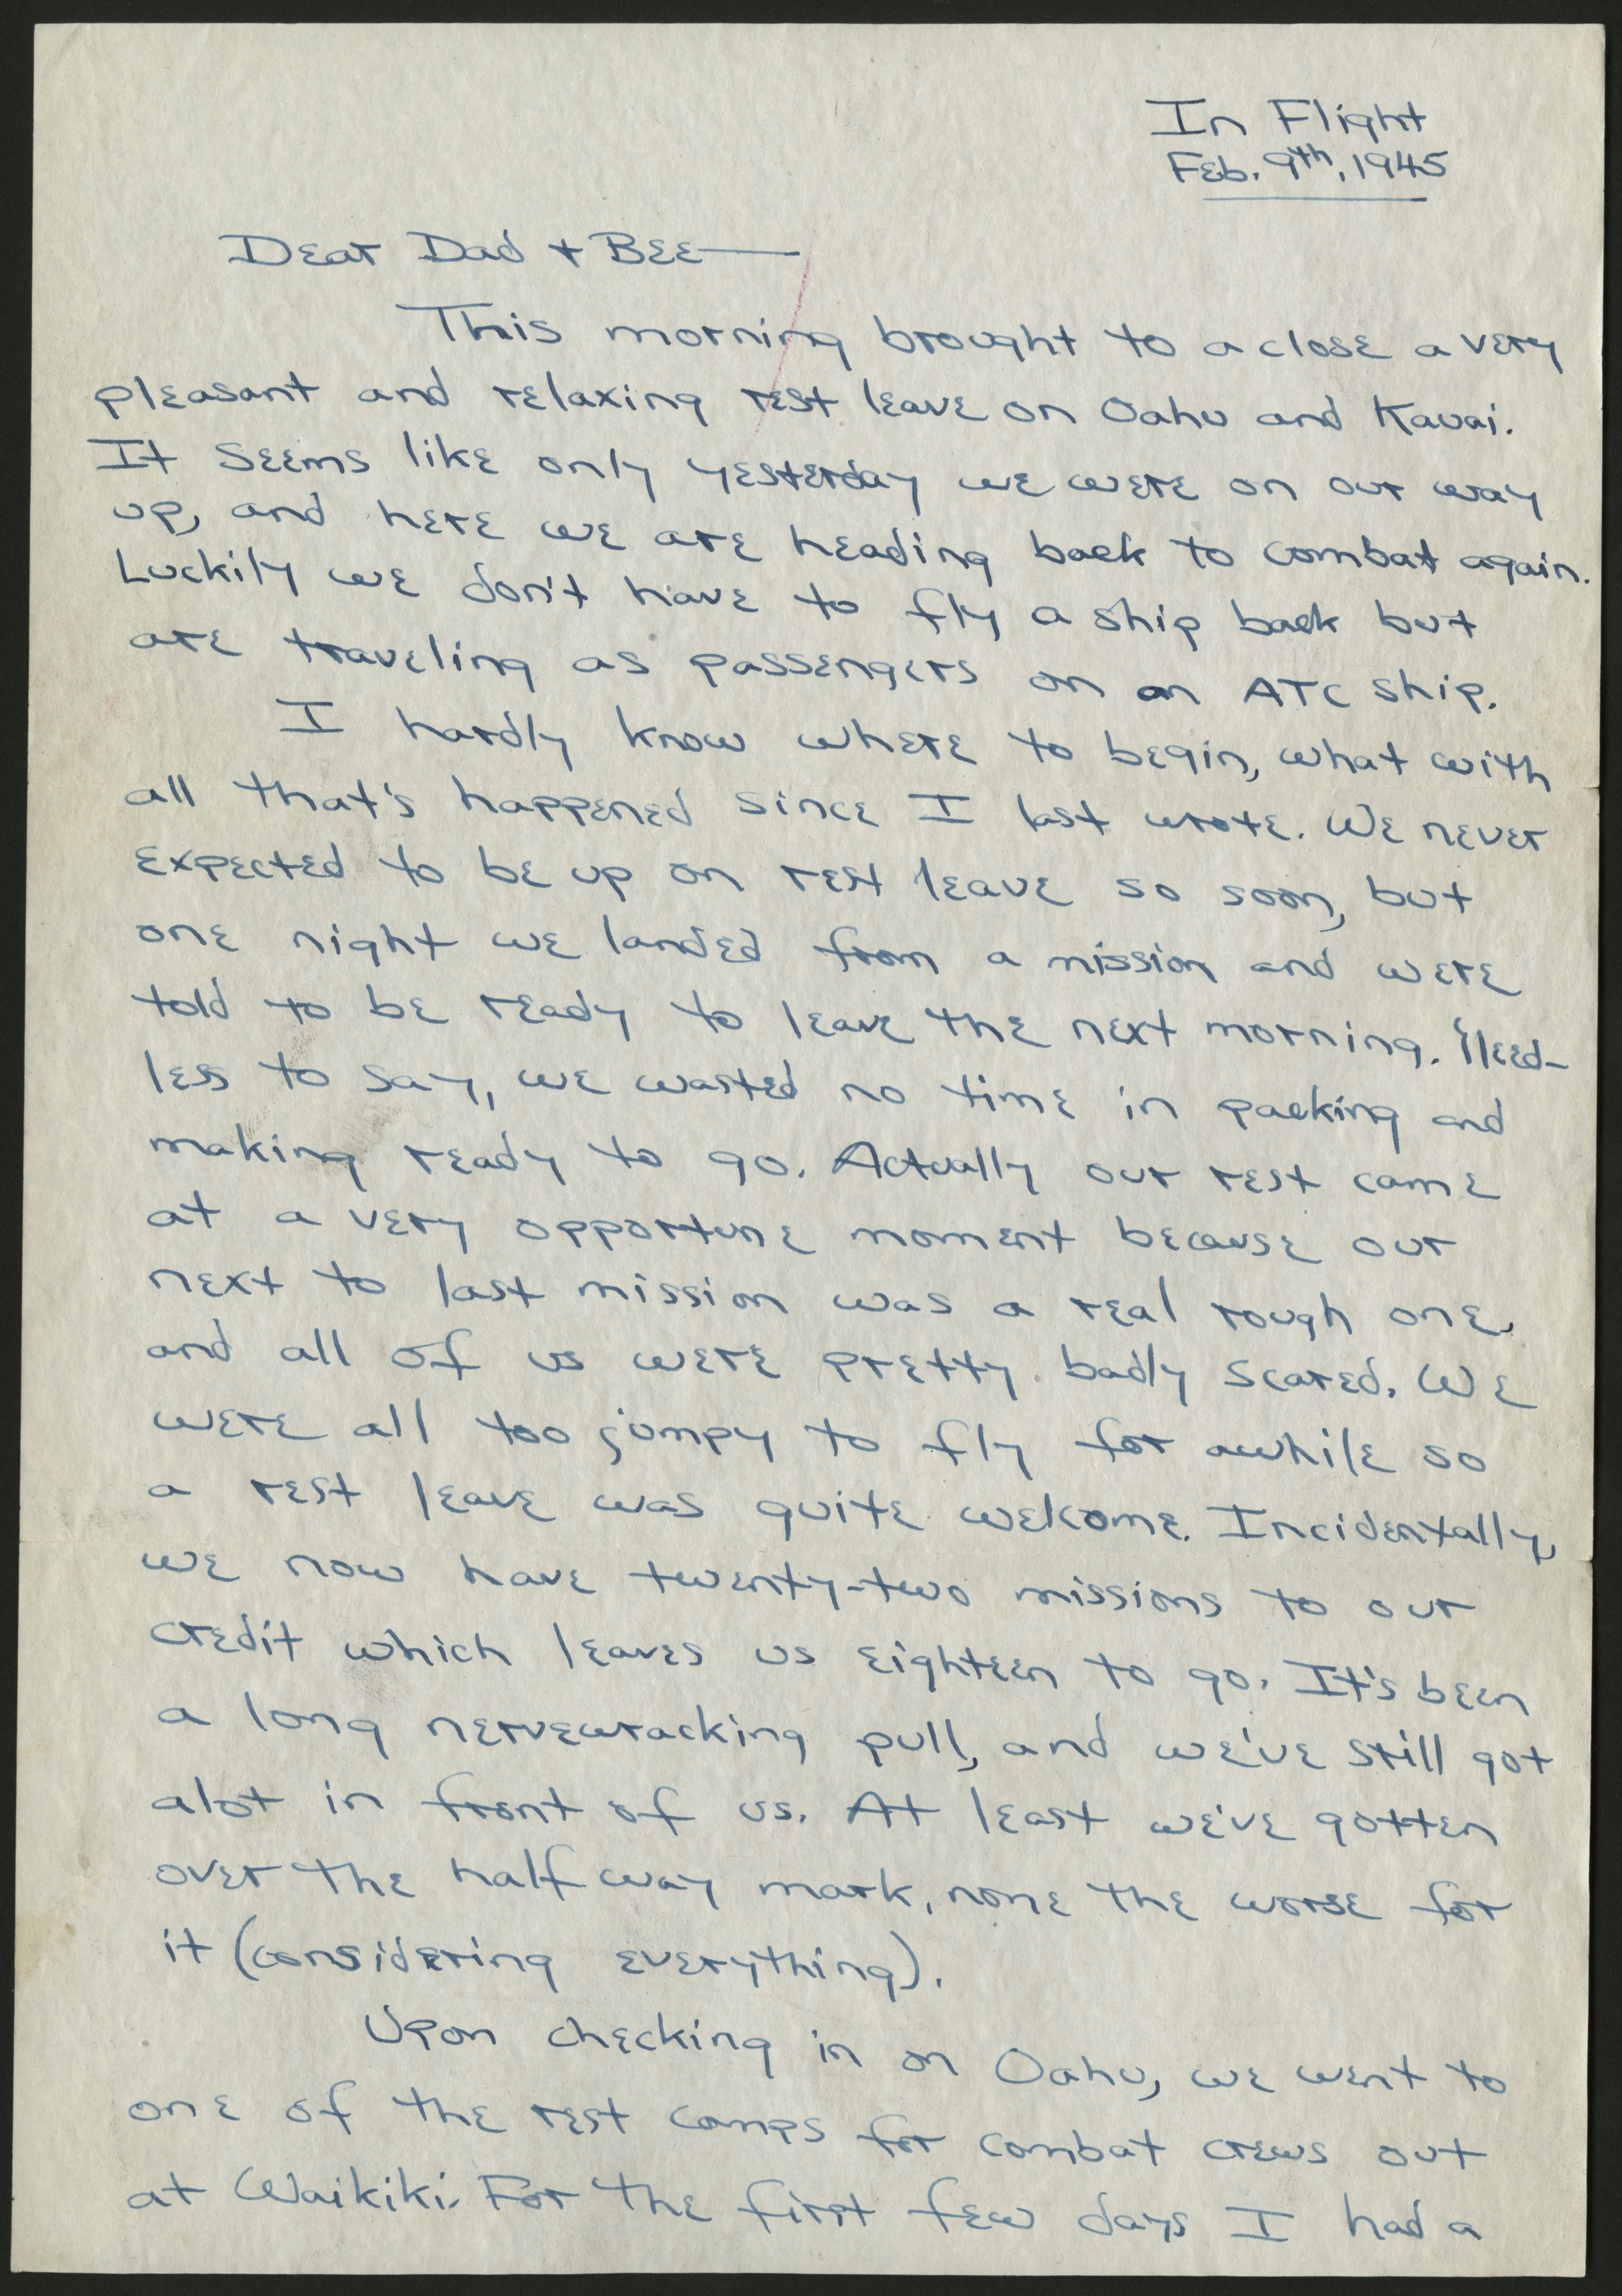 In Flight
Feb. 9th, 1945
Dear Dad + Bee—
This morning brought to a close a very
pleasant and relaxing rest leave on Oahu and Kauai.
It seems like only yesterday we were on our way
up, and here we are heading back to combat again.
Luckily we don't have to fly a ship back but
are traveling as passengers on an ATC ship.
I hardly know where to begin, what with
all that's happened since I last wrote. We never
expected to be up on rest leave so soon, but
one night we landed from a mission and were
told to be ready to leave the next morning. Need-
less to say, we wasted no time in packing and
making ready to go. Actually our rest came
at a very opportune moment because our
next to last mission was a real rough one,
and all of us were pretty badly scared. We
were all too jumpy to fly for awhile so
a rest leave was quite welcome. Incidentally,
we now have twenty-two missions to our
credit which leaves us eighteen to go. It's been
a long nervewracking pull, and we've still got
alot in front of us. At least we've gotten
over the half way mark, none the worse for
it (considering everything).
Upon checking in on Oahu, we went to
one of the rest camps for combat crews out
at Waikiki. For the first few days I had a